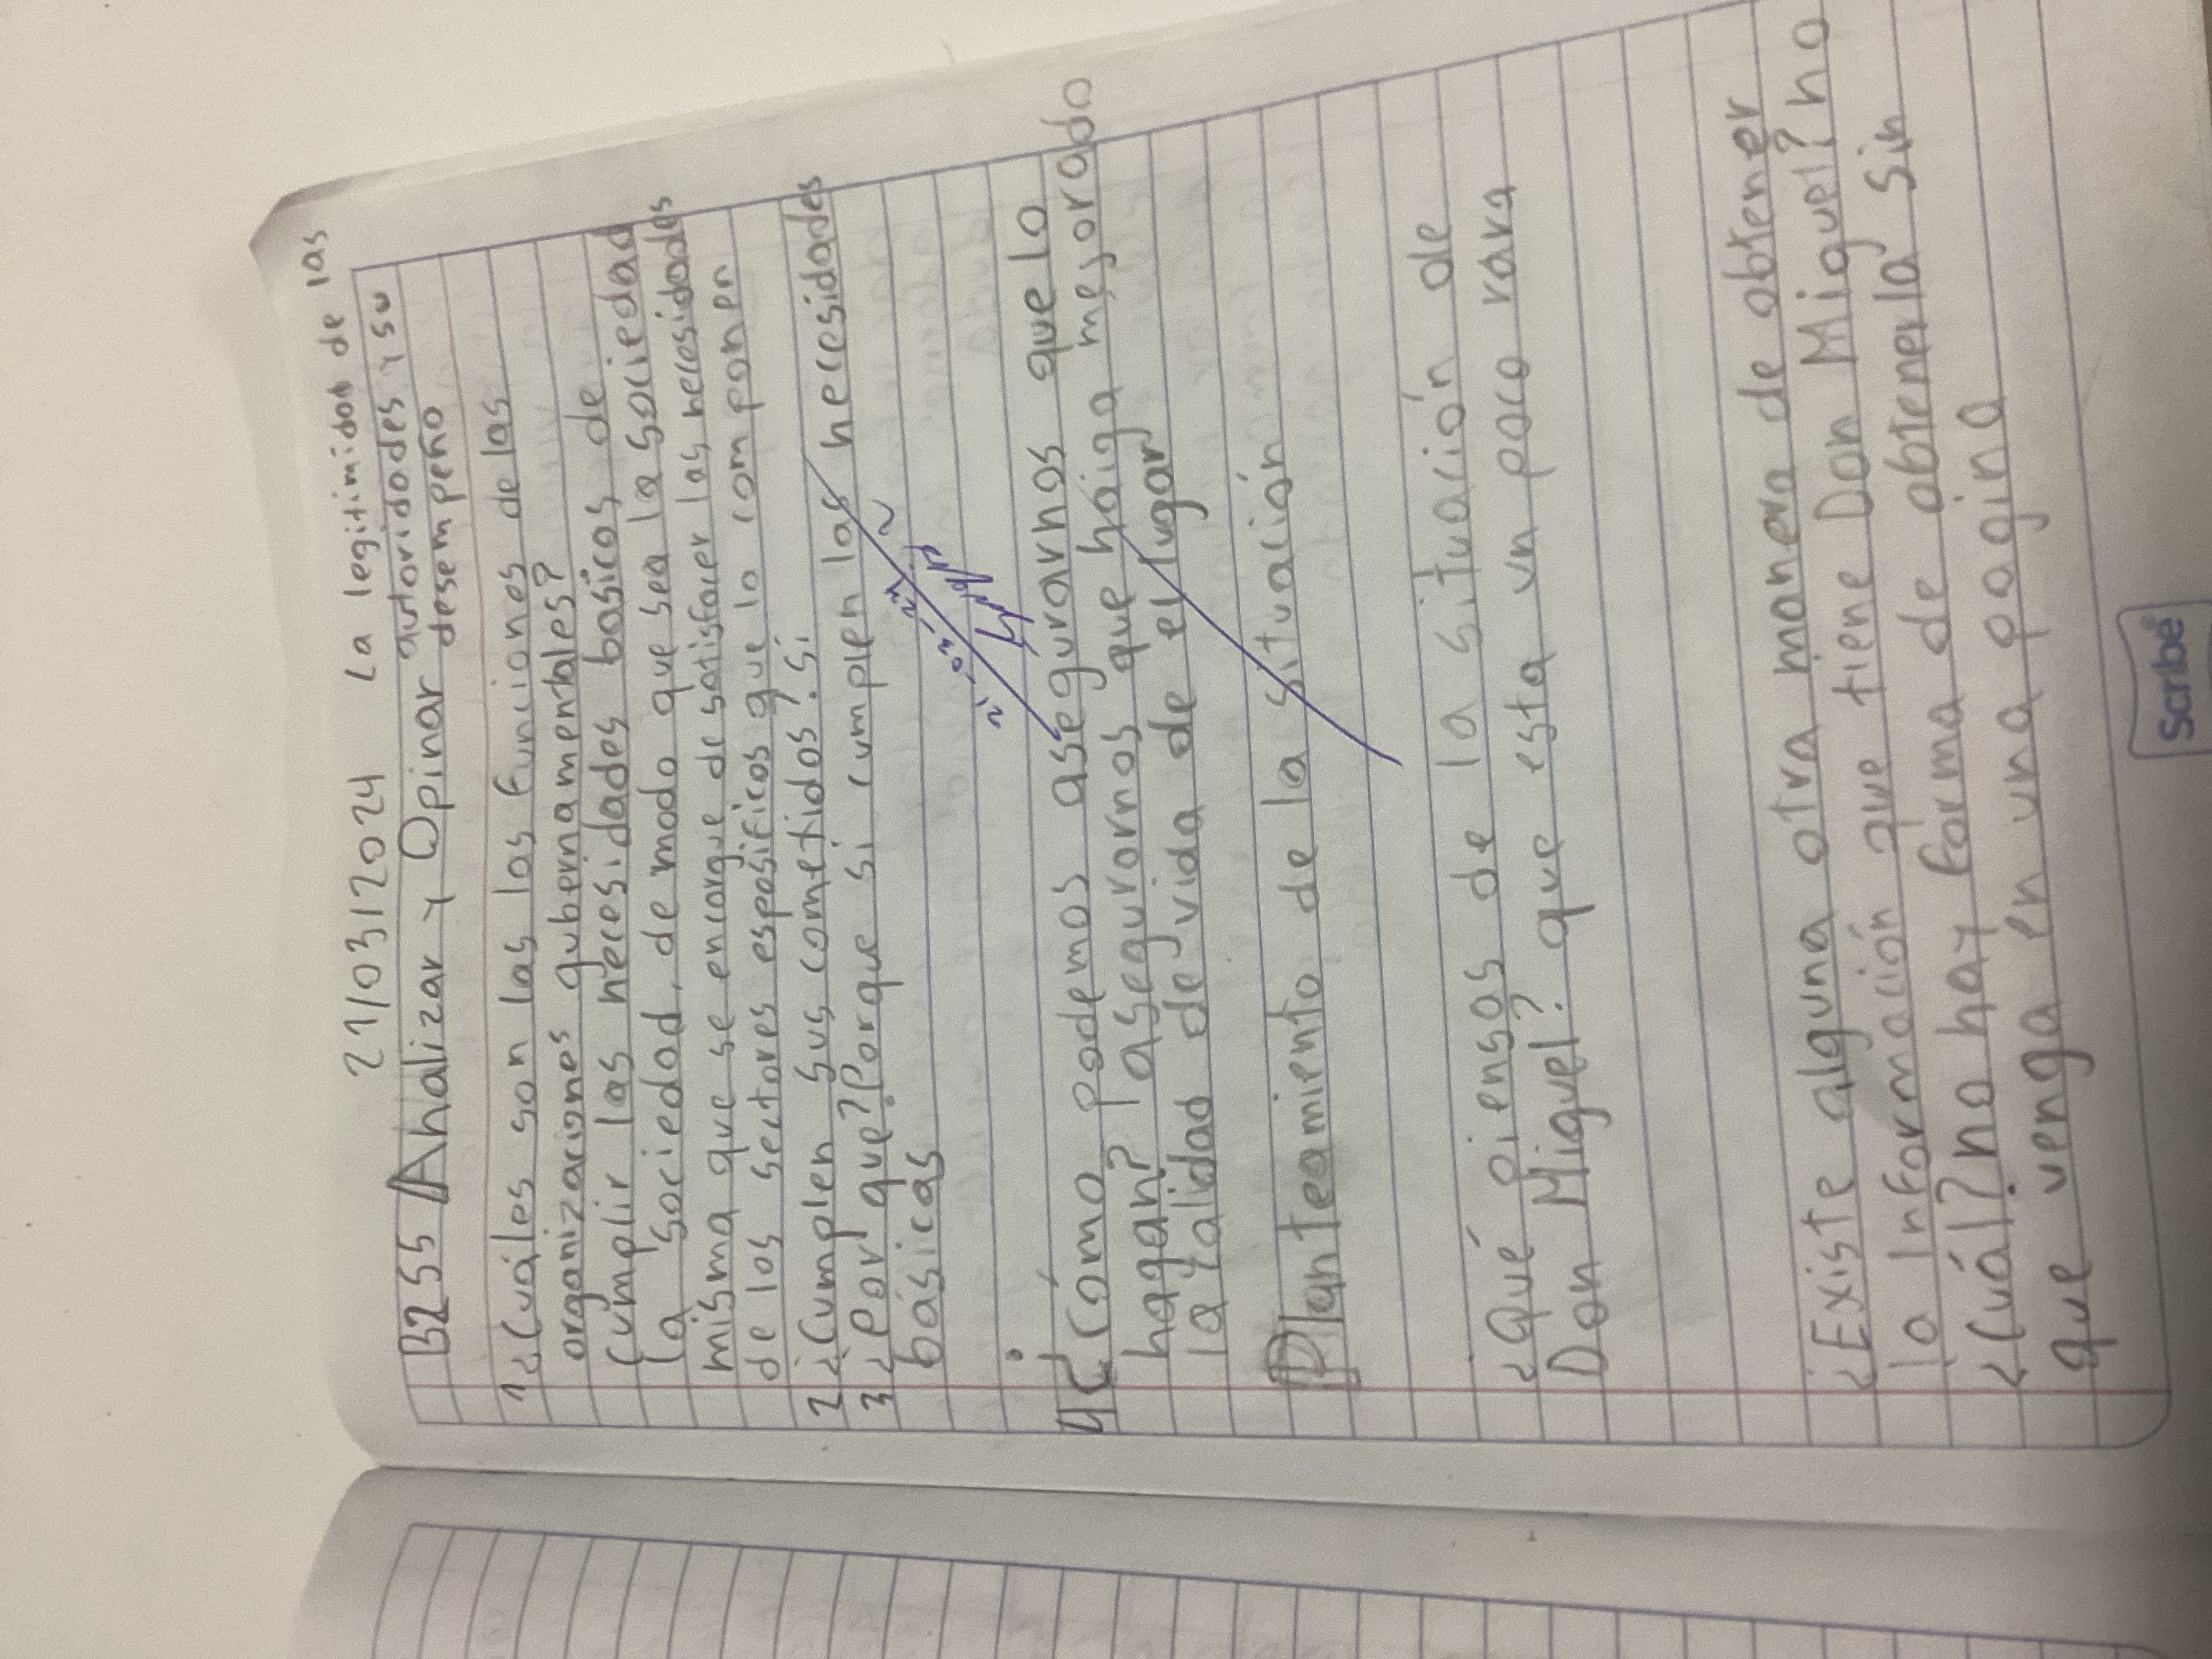 21/03/2024 La legitimidad de las
B2S5 Analizar y Opinar autoridades y su
desempeño
1 ¿Cuáles son las las funciones de las
organizaciones gubernamentales?
Cumplir las necesidades basicos de
la sociedad, de modo que sea la sociedad
misma que se encargue de satisfacer las necesidades
de los sectores esposificos que lo componen
2 ¿Cumplen sus cometidos? Si
3 ¿Por que? Porque si cumplen las necesidades
básicas
4 ¿Cómo podemos asegurarnos que lo
hagan? asegurarnos que haiga mejorado
la calidad de vida de el lugar
Planteamiento de la situación
¿Qué piensas de la situación de
Don Miguel? que esta un poco rara
¿Existe alguna otra manera de obtener
la información que tiene Don Miguel? no
¿Cuál? no hay forma de obtenerla sin
que venga en una pagina
Scribe